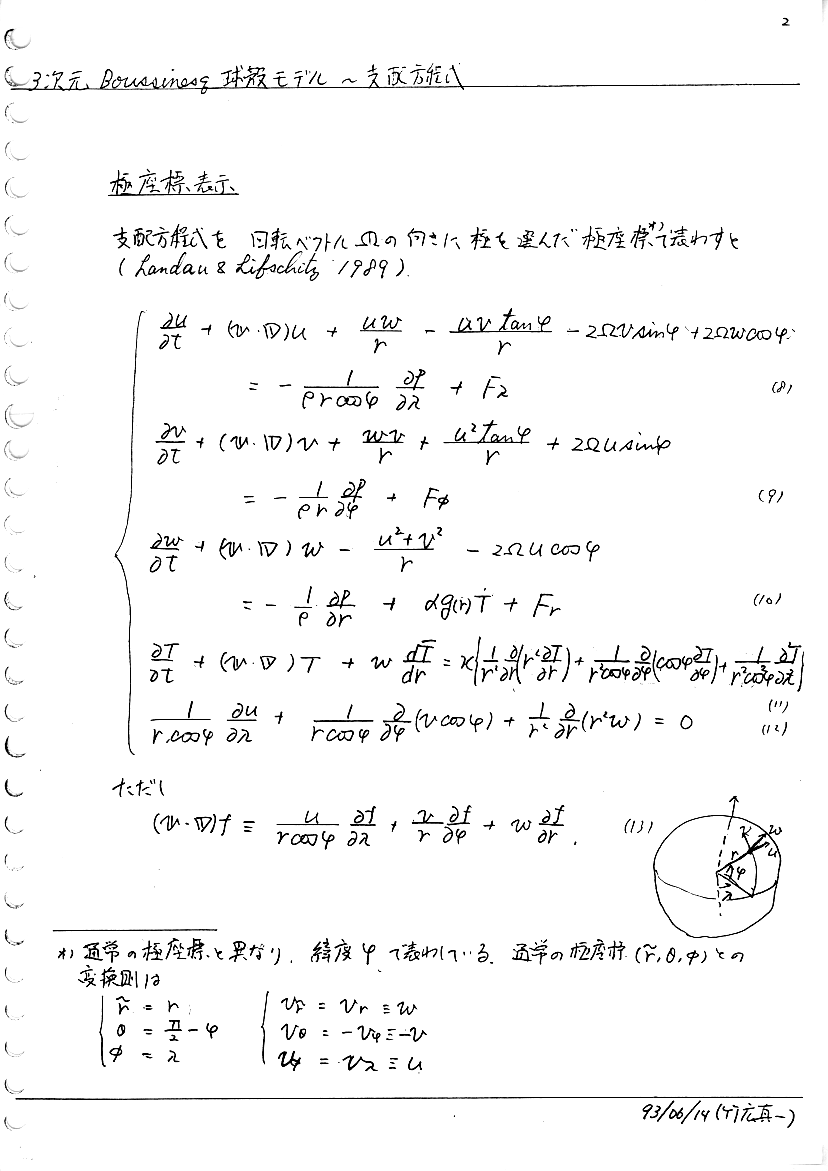 2
3次元 Boussinesq 球殻モデル ～ 支配方程式
極座標表示
支配方程式を 回転ベクトル Ω の向きに 極を選んだ 極座標*)で表わすと
( Landau & Lifschitz 1989 ).
∂u/∂t + (𝕧·∇)u + uw/r − uv tanφ/r − 2Ωv sinφ + 2Ωw cosφ
= − 1/(ρ r cosφ) ∂p/∂λ + Fλ (8)
∂v/∂t + (𝕧·∇)v + wv/r + u² tanφ/r + 2Ωu sinφ
= − 1/(ρ r) ∂p/∂φ + Fφ (9)
∂w/∂t + (𝕧·∇)w − (u²+v²)/r − 2Ωu cosφ
= − 1/ρ ∂p/∂r + αg(r)T + Fr (10)
∂T/∂t + (𝕧·∇)T + w dT̄/dr = κ{1/r² ∂/∂r(r² ∂T/∂r) + 1/(r² cosφ) ∂/∂φ(cosφ ∂T/∂φ) + 1/(r² cos²φ) ∂²T/∂λ²} (11)
1/(r cosφ) ∂u/∂λ + 1/(r cosφ) ∂/∂φ(v cosφ) + 1/r² ∂/∂r(r² w) = 0 (12)
ただし
(𝕧·∇)f ≡ u/(r cosφ) ∂f/∂λ + v/r ∂f/∂φ + w ∂f/∂r. (13)
w
u
r
φ
λ
*) 通常の極座標と異なり, 緯度 φ で表わしている. 通常の極座標 (r̃, θ, ϕ) との
変換則は
r̃ = r
θ = π/2 − φ
ϕ = λ
v_r̃ = v_r ≡ w
v_θ = −v_φ ≡ −v
v_ϕ = v_λ ≡ u
93/06/14(竹広真一)